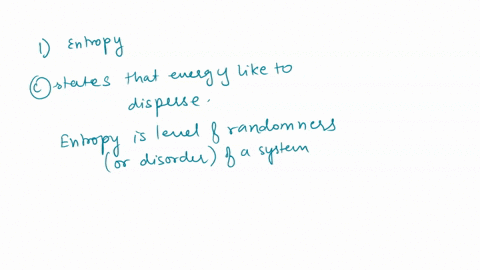 1) Entropy
(c) states that energy like to
disperse.
Entropy is level of randomness
(or disorder) of a system